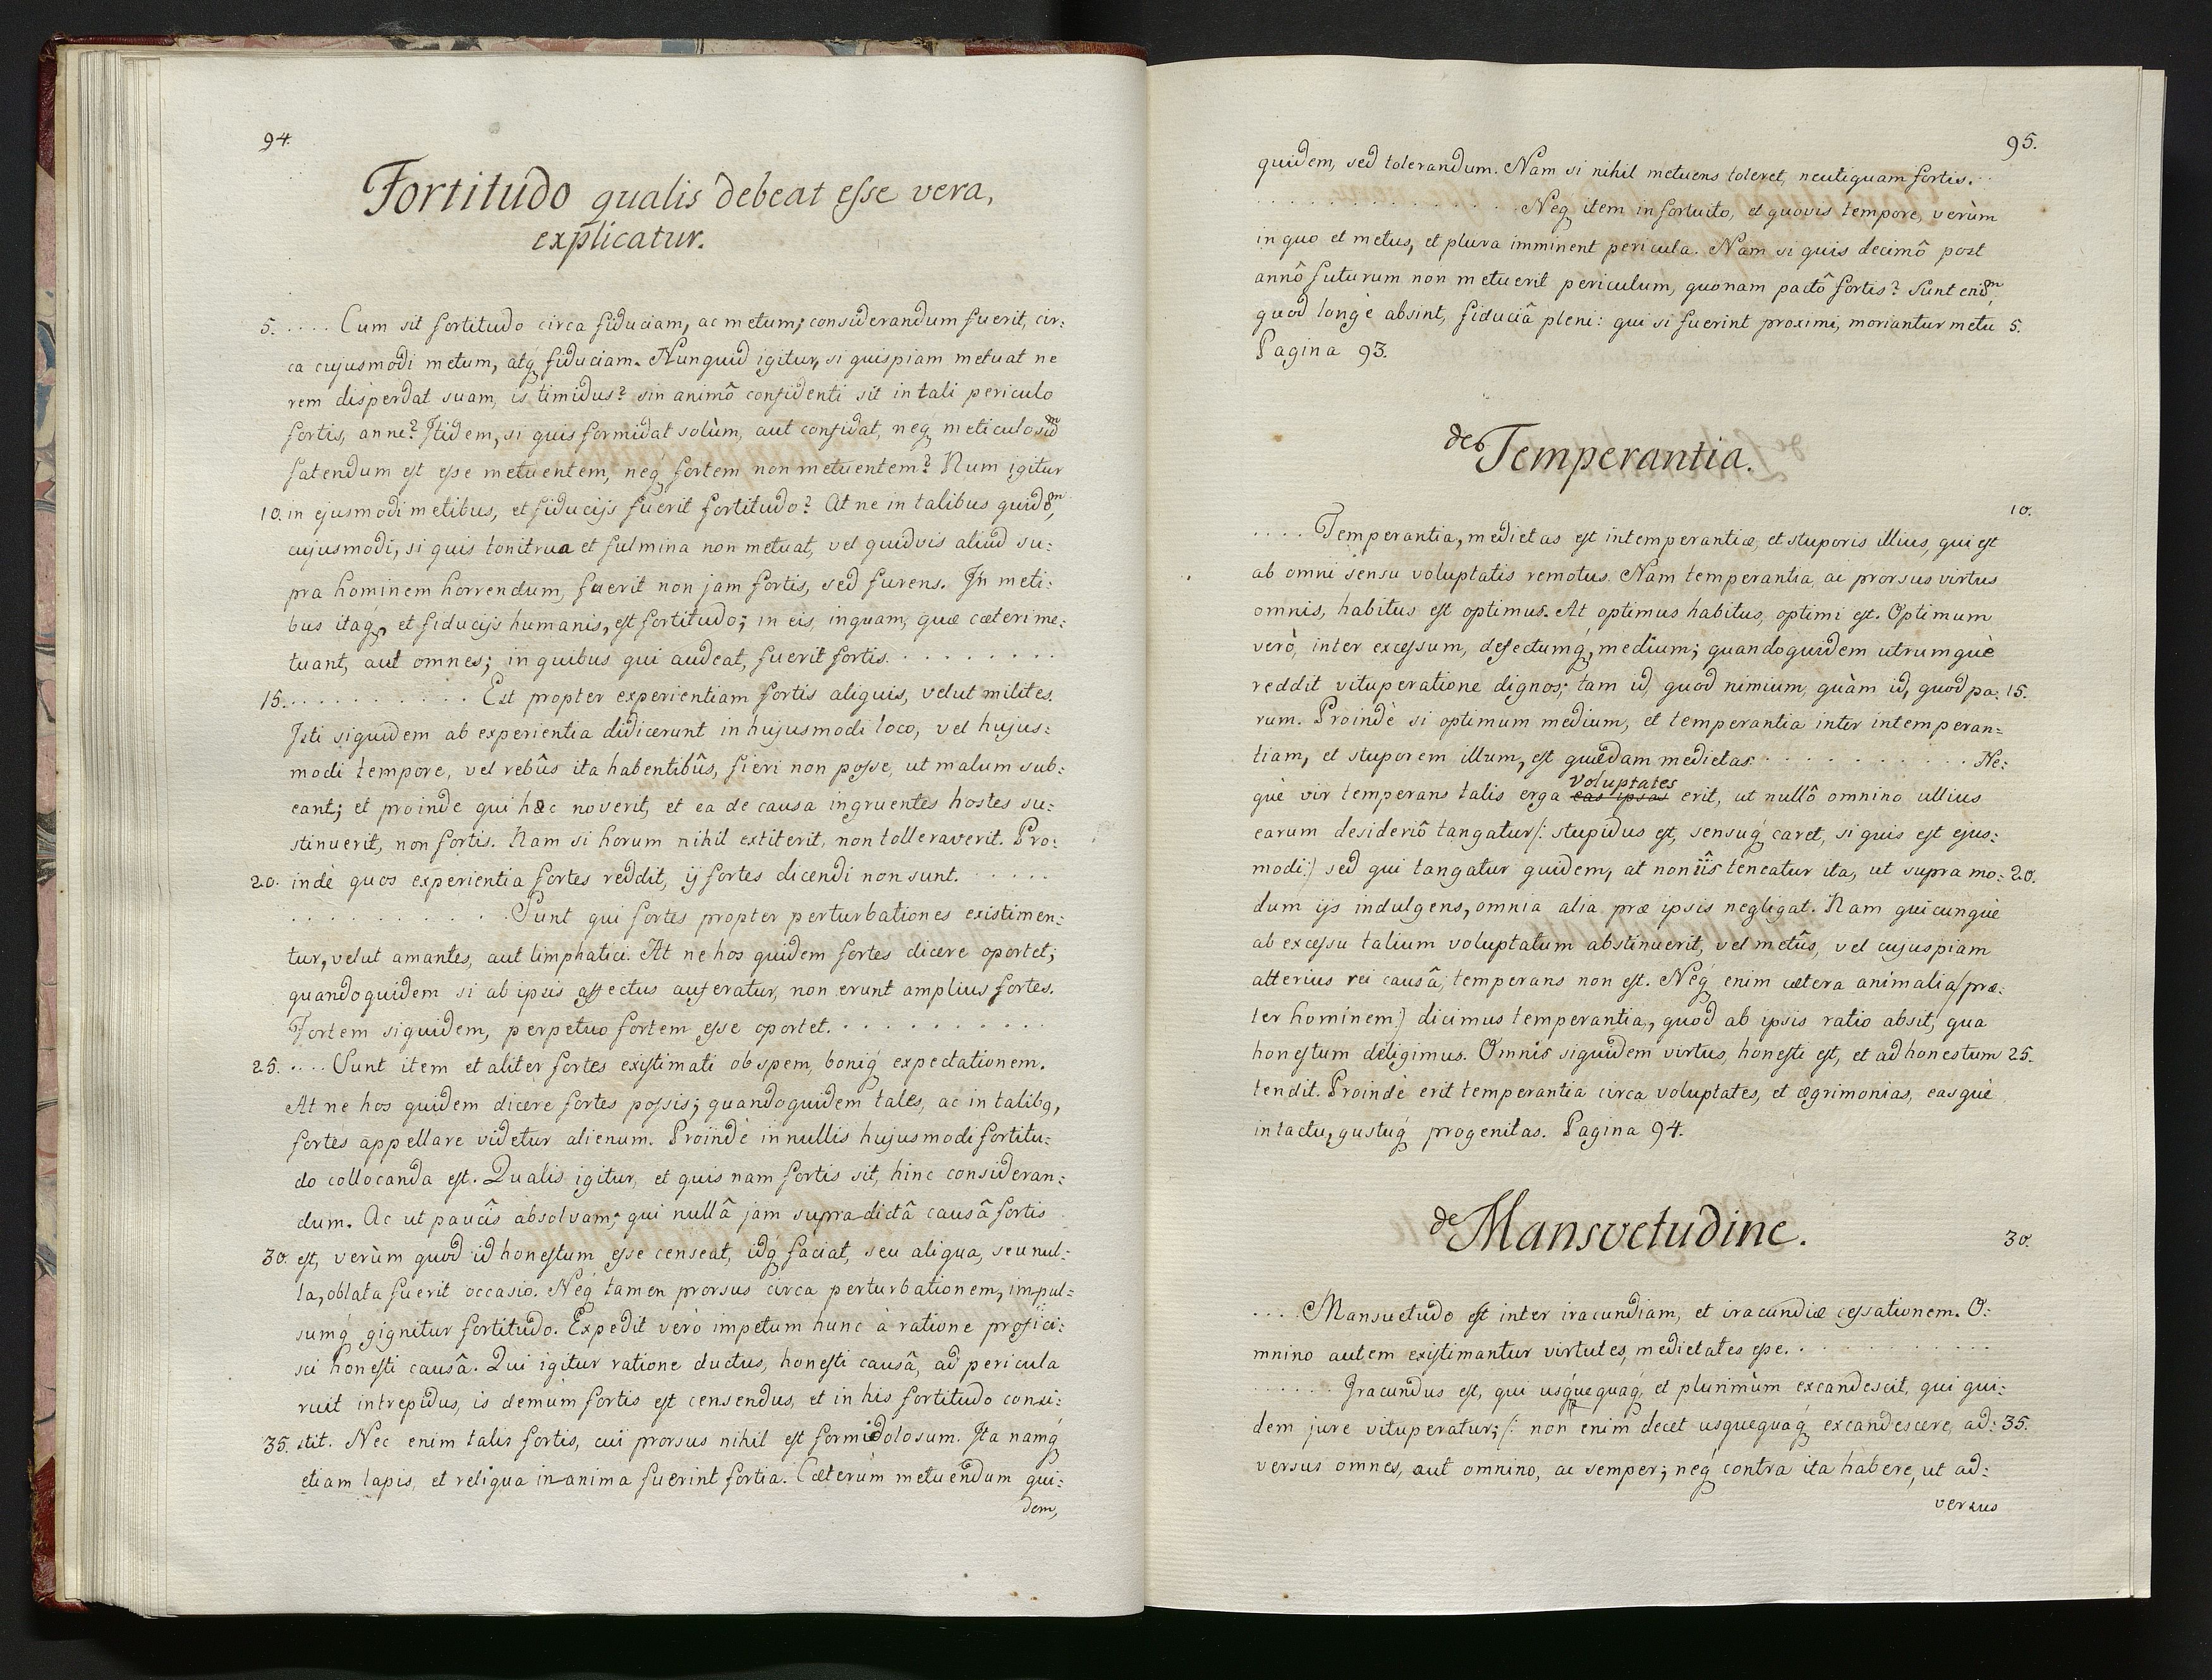 94.
Fortitudo qualis debeat esse vera,
explicatur.
5. .... Cum sit fortitudo circa fiduciam, ac metum; considerandum fuerit, cir:
ca cujusmodi metum, atq fiduciam. Nunquid igitur, si quispiam metuat ne
rem disperdat suam, is timidus? sin animô confidenti sit in tali periculo
fortis, anne? Itidem, si quis formidat solùm, aut confidat, neq meticulosũm
fatendum est esse metuentem, neq fortem non metuentem? Num igitur
10. in ejusmodi metibus, et fiducijs fuerit fortitudo? At ne in talibus quidem,
cujusmodi, si quis tonitrua et fulmina non metuat, vel quidvis aliud su:
pra hominem horrendum, fuerit non jam fortis, sed furens. In meti:
bus itaq, et fiducijs humanis, est fortitudo; in eis, inquam, quæ cæteri me:
tuant, aut omnes; in quibus qui audeat, fuerit fortis. . . . . . . . .
15. . . . . . . . . . . Est propter experientiam fortis aliquis, velut milites.
Isti siquidem ab experientia didicerunt in hujusmodi loco, vel hujus:
modi tempore, vel rebûs ita habentibûs, fieri non posse, ut malum sub:
eant; et proinde qui hæc noverit, et ea de causa ingruentes hostes su:
stinuerit, non fortis. Nam si horum nihil extiterit, non tolleraverit. Pro:
20. indè quos experientia fortes reddit, ij fortes dicendi non sunt. . . . . .
. . . . . . . . . . Sunt qui fortes propter perturbationes existimen:
tur, velut amantes, aut limphatici. At ne hos quidem fortes dicere oportet;
quandoquidem si ab ipsis affectus auferatur, non erunt amplius fortes.
Fortem siquidem, perpetuo fortem esse oportet. . . . . . . . . . .
25. .... Sunt item et aliter fortes existimati ob spem, boniq expectationem.
At ne hos quidem dicere fortes possis; quandoquidem tales, ac in talibq,
fortes appellare videtur alienum. Proindè in nullis hujusmodi fortitu:
do collocanda est. Qualis igitur, et quis nam fortis sit, hinc consideran:
dum. Ac ut paucîs absolvam; qui nullâ jam supradictâ causâ fortis
30. est, verùm quod id honestum esse censeat, idq faciat, seu aliqua, seu nul:
la, oblata fuerit occasio. Neq tamen prorsus circa perturbationem, impul:
sumq gignitur fortitudo. Expedit verò impetum hunc à ratione profici:
sci honesti causâ. Qui igitur ratione ductus, honesti causâ, ad pericula
ruit intrepidus, is demum fortis est censendus, et in his fortitudo consi:
35. stit. Nec enim talis fortis, cui prorsus nihil est formidolosum. Ita namq
etiam lapis, et reliqua inanima fuerint fortia. Cæterùm metuendum qui:
dem,
95.
quidem, sed tolerandum. Nam si nihil metuens toleret, neutiquam fortis. . .
. . . . . . . . . . . . . . Neq item in fortuito, et quovis tempore, verùm
in quo et metus, et plura imminent pericula. Nam si quis decimô post
annô futurum non metuerit periculum, quonam pactô fortis? Sunt enim,
quod longè absint, fiduciâ pleni: qui si fuerint proximi, moriantur metu 5.
Pagina 93.
de Temperantia.
10.
.... Temperantia, medietas est intemperantiæ, et stuporis illius, qui est
ab omni sensu voluptatis remotus. Nam temperantia, ac prorsus virtus
omnis, habitus est optimus. At optimus habitus, optimi est. Optimum
verò, inter excessum, defectumq, medium; quandoquidem utrumquè
reddit vituperatione dignos; tam id, quod nimium, quàm id, quod pa: 15.
rum. Proindè si optimum medium, et temperantia inter intemperan:
tiam, et stuporem illum, est quædam medietas. . . . . . . . . . . . Ne:
què vir temperans talis erga eas ipsas voluptates erit, ut nullô omnino ullius
earum desideriô tangatur /: stupidus est, sensuq caret, si quis est ejus:
modi :/ sed qui tangatur quidem, at non iîs teneatur ita, ut supra mo: 20.
dum ijs indulgens, omnia alia præ ipsis negligat. Nam quicunquè
ab excessu talium voluptatum abstinuerit, vel metûs, vel cujuspiam
alterius rei causâ, temperans non est. Neq enim cætera animalia /præ:
ter hominem :/ dicimus temperantia, quod ab ipsis ratio absit, qua
honestum deligimus. Omnis siquidem virtus, honesti est, et ad honestum 25.
tendit. Proindè erit temperantia circa voluptates, et ægrimonias, easquè
in tactu, gustuq progenitas. Pagina 94.
de Mansvetudine.
30.
. . . Mansuetudo est inter iracundiam, et iracundiæ cessationem. O:
mnino autem existimantur virtutes, medietates esse. . . . . . . . . . . .
. . . . . . Iracundus est, qui usquequaq, et plurimùm excandescit, qui qui:
dem jure vituperatur; /: non enim decet usquequaq excandescere, ad: 35.
versus omnes, aut omnino, ac semper; neq contra ita habere, ut ad:
versus